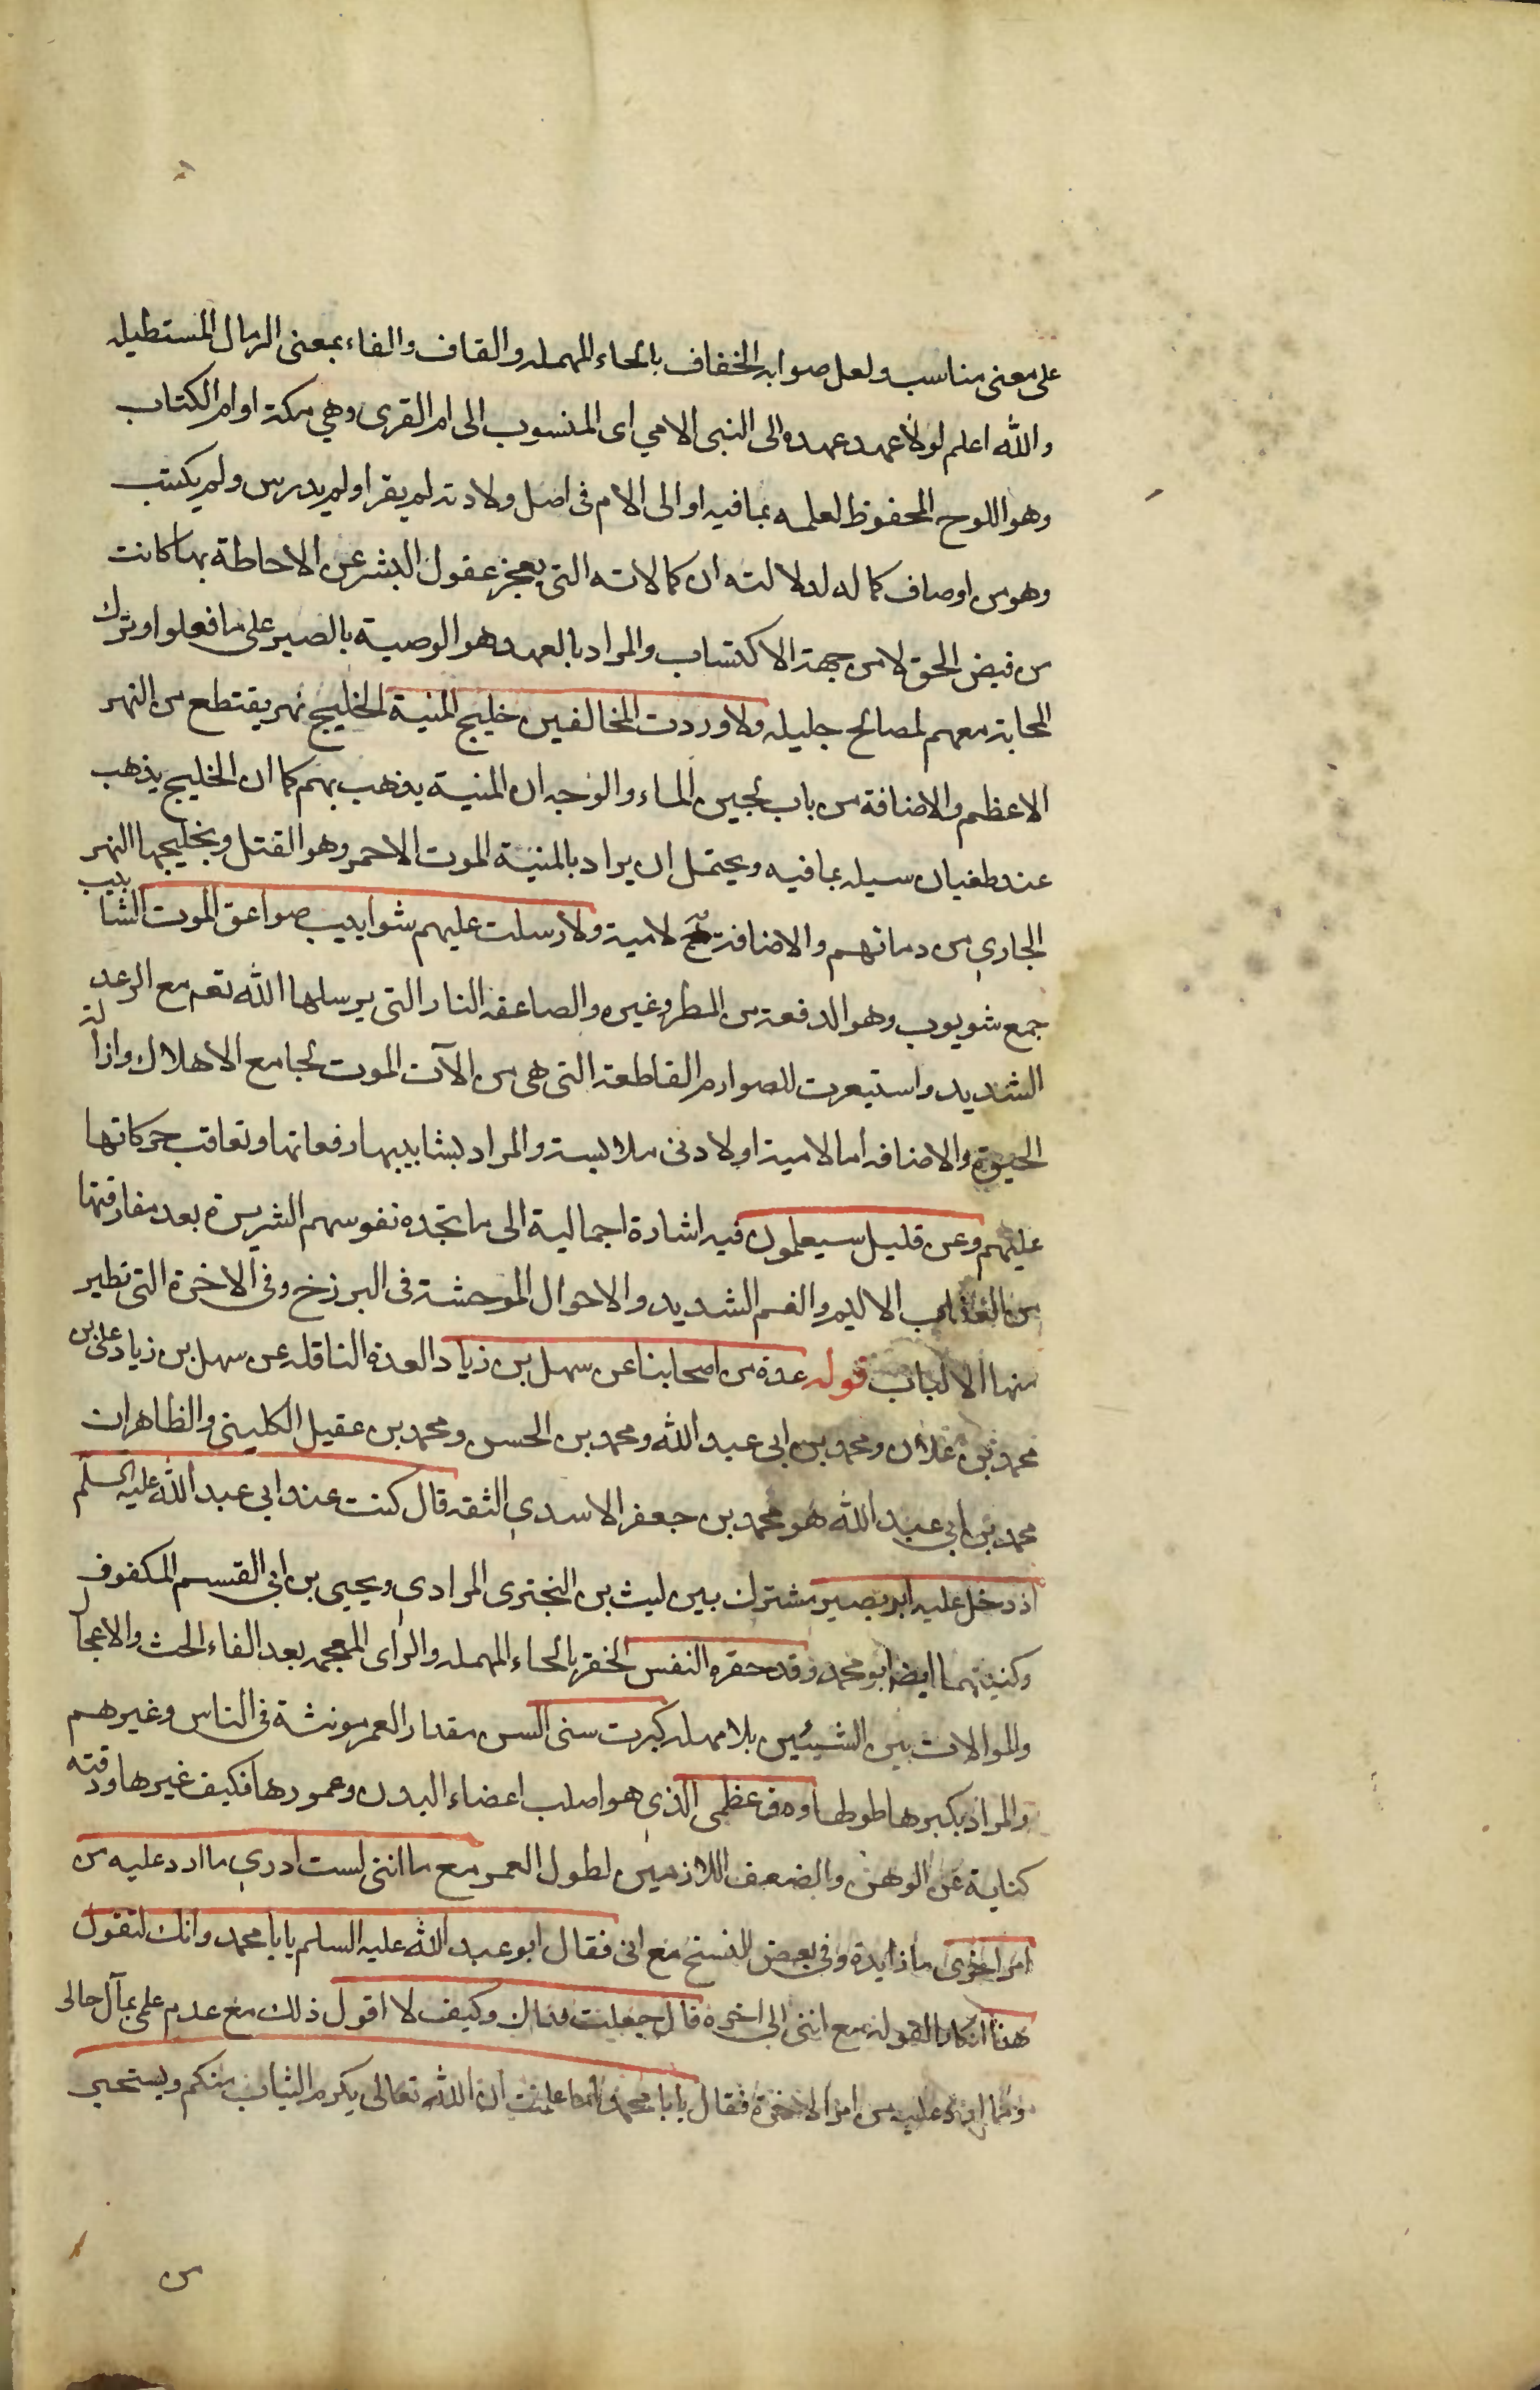 على معنى مناسب ولعل صوابه الحقاف بالحاء المهمله والقاف والفاء بمعنى الرمال المستطيله
والله اعلم لولا عهد عهده الى النبى الامي اى المنسوب الى ام القرى وهي مكة او ام الكتاب
وهو اللوح المحفوظ لعلمه بما فيه او الى الام فى اصل ولادته لم يقرا ولم يدرس ولم يكتب
وهو من اوصاف كماله لدلالته ان كمالاته التى يعجز عقول البشر عن الاحاطة بها كانت
من فيض الحق لا من جهة الاكتساب والمراد بالعهد هو الوصية بالصبر على ما فعلوا وترك
المحابة معهم لمصالح جليله ولا وردت المخالفين خليج المنية الخليج نهر يقتطع من النهر
الاعظم والاضافة من باب لجين الماء والوجه ان المنية يذهب بهم كما ان الخليج يذهب
عند طغيان سيله بما فيه ويحتمل ان يراد بالمنية الموت الاحمر وهو القتل وبخليجها النهر
الجاري من دمائهم والاضافة ح لامية ولا رسلت عليهم شوابيب صواعق الموت الشابيب
جمع شويوب وهو الدفعة من المطر وغيره والصاعقه النار التى يرسلها الله تعم مع الرعد
الشديد واستيعرت للصوارم القاطعة التى هى من الآت الموت لجامع الاهلاك وازالة
الحيوة والاضافه اما لامية او لادنى ملابسة والمراد بشابيبها دفعاتها وتعاقب حركاتها
عليهم وعن قليل سيعلمون فيه اشارة اجمالية الى ما تجده نفوسهم الشريرة بعد مفارقتها
من العذاب الاليم والغم الشديد والاحوال الموحشة فى البرزخ وفى الاخرة التى تطير
منها الالباب قوله عدة من اصحابنا عن سهل بن زياد العدة الناقله عن سهل بن زياد على بن
محمد بن علان ومحمد بن ابى عبد الله ومحمد بن الحسن ومحمد بن عقيل الكلينى والظاهر ان
محمد بن ابي عبد الله هو محمد بن جعفر الاسدي الثقه قال كنت عند ابي عبد الله عليه السلم
اذ دخل عليه ابو بصير مشترك بين ليث بن البخترى المرادي ويحيى بن ابى القسم المكفوف
وكنيتهما ايضا ابو محمد وقد حفزه النفس الحفز بالحاء المهمله والزاى المعجمه بعد الفاء الحث والاعجال
والموالات بين الشيئين بلا مهله كبرت سنى السن مقدار العمر مونثة فى الناس وغيرهم
والمراد بكبرها طولها ودق عظمى الذي هو اصلب اعضاء البدن وعمودها فكيف غيرها ودقته
كناية عن الوهن والضعف اللازمين لطول العمر مع ما اننى لست ادري ما ارد عليه من
امر اخرى ما زايدة وفي بعض النسخ مع انى فقال ابو عبد الله عليه السلم يا با محمد وانك لتقول
هذا انكار القوله مع اننى الى اخره قال جعلت فداك وكيف لا اقول ذلك مع عدم علمى بمآل حالى
وما ارد عليه من امر الاخرة فقال يا با محمد اما علمت ان الله تعالى يكرم الشباب منكم ويستحيى
من